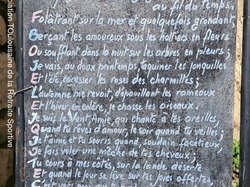 au fil du temps,
Folâtrant sur la mer et quelquefois grondant,
Gerçant les amoureux sous les halliers en fleurs
Ou soufflant dans la nuit sur les arbres en pleurs ;
Je vais, au doux printemps, taquiner les jonquilles
Et l'été caresser les roses des charmilles ;
L'automne me revoit, dépouillant les rameaux
Et l'hiver, en colère, je chasse les oiseaux.
Je suis le Vent, Amie, qui chante à tes oreilles,
Quand tu rêves d'amour, le soir quand tu veilles ;
Je t'aime et tu souris quand, soudain, facétieux,
Je fais voler une mèche de tes cheveux ;
Tu cours à mes côtés sur la lande déserte
Et quand le lourd se livre sur tes joues offertes
C'est
Retraite Sportive